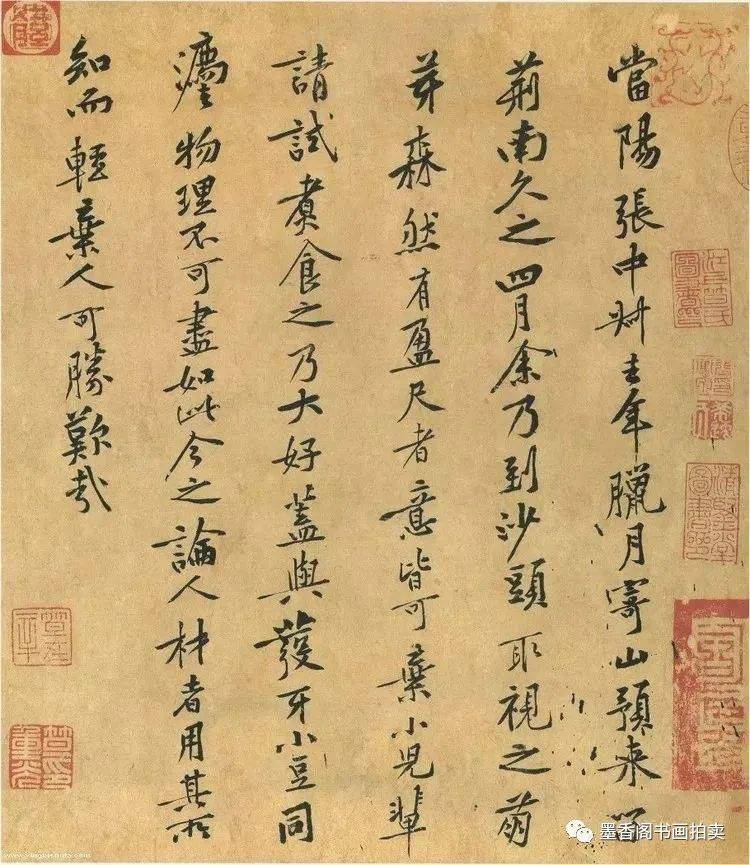 當陽張中叔去年臘月寄山預来留
荊南久之四月余乃到沙頭取視之萌
芽森然有盈尺者意皆可棄小兒輩
請試煮食之乃大好蓋與發牙小豆同
灋物理不可盡如此今之論人材者用其所
知而輕棄人可勝歎哉
墨香阁书画拍卖